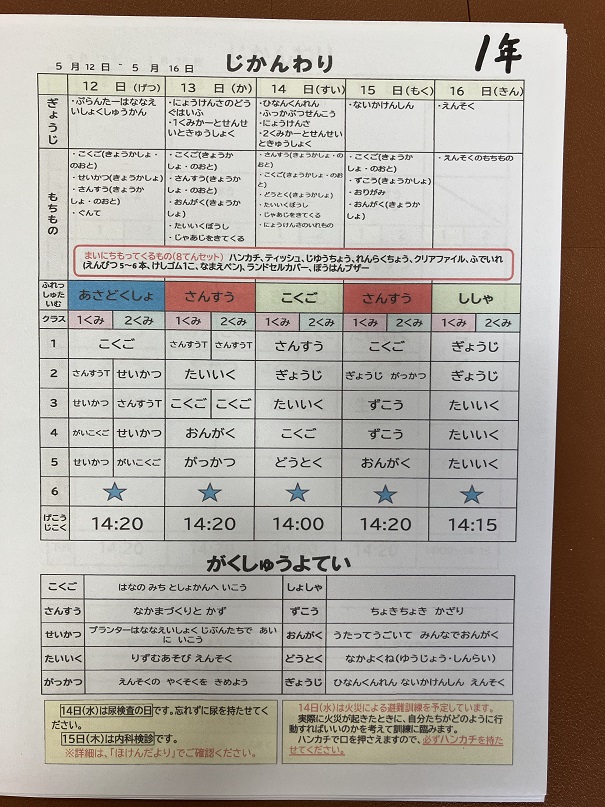 1年
5 月 12 日 ~ 5 月 16 日 じかんわり
12 日 (げつ) 13 日 (か) 14 日(すい) 15 日(もく) 16 日(きん)
ぎょうじ
・ぷらんたーはななえいしょくしゅうかん
・にょうけんさのどうぐはいふ
・1くみかーとせんせいときゅうしょく
・ひなんくんれん
・ふっかぶつせんこう
・にょうけんさ
・2くみかーとせんせいときゅうしょく
・ないかけんしん
・えんそく
もちもの
・こくご(きょうかしょ・のおと)
・せいかつ(きょうかしょ)
・さんすう(きょうかしょ・のおと)
・ぐんて
・こくご(きょうかしょ・のおと)
・さんすう(きょうかしょ・のおと)
・おんがく(きょうかしょ)
・たいいくぼうし
・じゃあじをきてくる
・さんすう(きょうかしょ・のおと)
・こくご(きょうかしょ・のおと)
・どうとく(きょうかしょ)
・たいいくぼうし
・じゃあじをきてくる
・にょうけんさのいれもの
・こくご(きょうかしょ・のおと)
・ずこう(きょうかしょ)
・おりがみ
・おんがく(きょうかしょ)
・えんそくのもちもの
まいにちもってくるもの(8てんセット) ハンカチ、ティッシュ、じゆうちょう、れんらくちょう、クリアファイル、ふでいれ
(えんぴつ5~6本、けしゴム1こ、なまえペン)、ランドセルカバー、ぼうはんブザー
ふれっしゅたいむ あさどくしょ さんすう こくご さんすう ししゃ
クラス 1くみ 2くみ 1くみ 2くみ 1くみ 2くみ 1くみ 2くみ 1くみ 2くみ
1 こくご さんすうT さんすうT さんすう こくご ぎょうじ
2 さんすうT せいかつ たいいく ぎょうじ ぎょうじ がっかつ ぎょうじ
3 せいかつ さんすうT こくご こくご たいいく ずこう たいいく
4 がいこくご せいかつ おんがく こくご ずこう たいいく
5 せいかつ がいこくご がっかつ どうとく おんがく たいいく
6 ★ ★ ★ ★ ★
げこうじこく 14:20 14:20 14:00 14:20 14:15
がくしゅうよてい
こくご はなの みち としょかんへ いこう しょしゃ
さんすう なかまづくりと かず ずこう ちょきちょき かざり
せいかつ プランターはななえいしょく じぶんたちで あいに いこう おんがく うたってうごいて みんなでおんがく
たいいく りずむあそび えんそく どうとく なかよくね(ゆうじょう・しんらい)
がっかつ えんそくの やくそくを きめよう ぎょうじ ひなんくんれん ないかけんしん えんそく
14日(水)は尿検査の日です。忘れずに尿を持たせてください。
15日(木)は内科検診です。
※詳細は、「ほけんだより」でご確認ください。
14日(水)は火災による避難訓練を予定しています。
実際に火災が起きたときに、自分たちがどのように行動すればいいのかを考えて訓練に臨みます。
ハンカチで口を押さえますので、必ずハンカチを持たせてください。